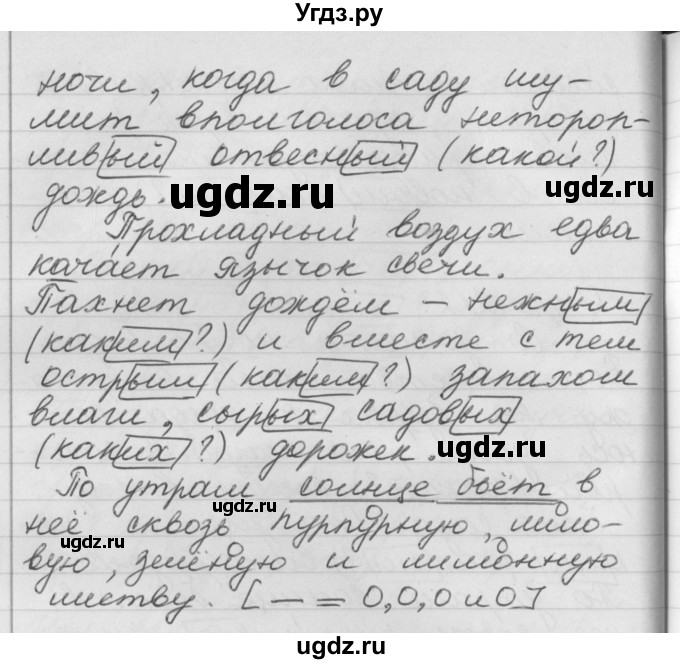 Угдз.ру
ночи, когда в саду шу-
мит вполголоса нетороп-
ливый отвесный (какой?)
дождь.
ugdz.ru
ugdz.ru
Прохладный воздух едва
качает язычок свечи.
Пахнет дождём – нежным
(каким?) и вместе с тем
острым (каким?) запахом
ugdz.ru
ugdz.ru
влаги, сырых садовых
(каких?) дорожек.
ugdz.ru
По утрам солнце бьёт в
неё сквозь пурпурную, лило-
ugdz.ru
ugdz.ru
вую, зелёную и лимонную
листву. [— = О, О, О и О]
ugdz.ru